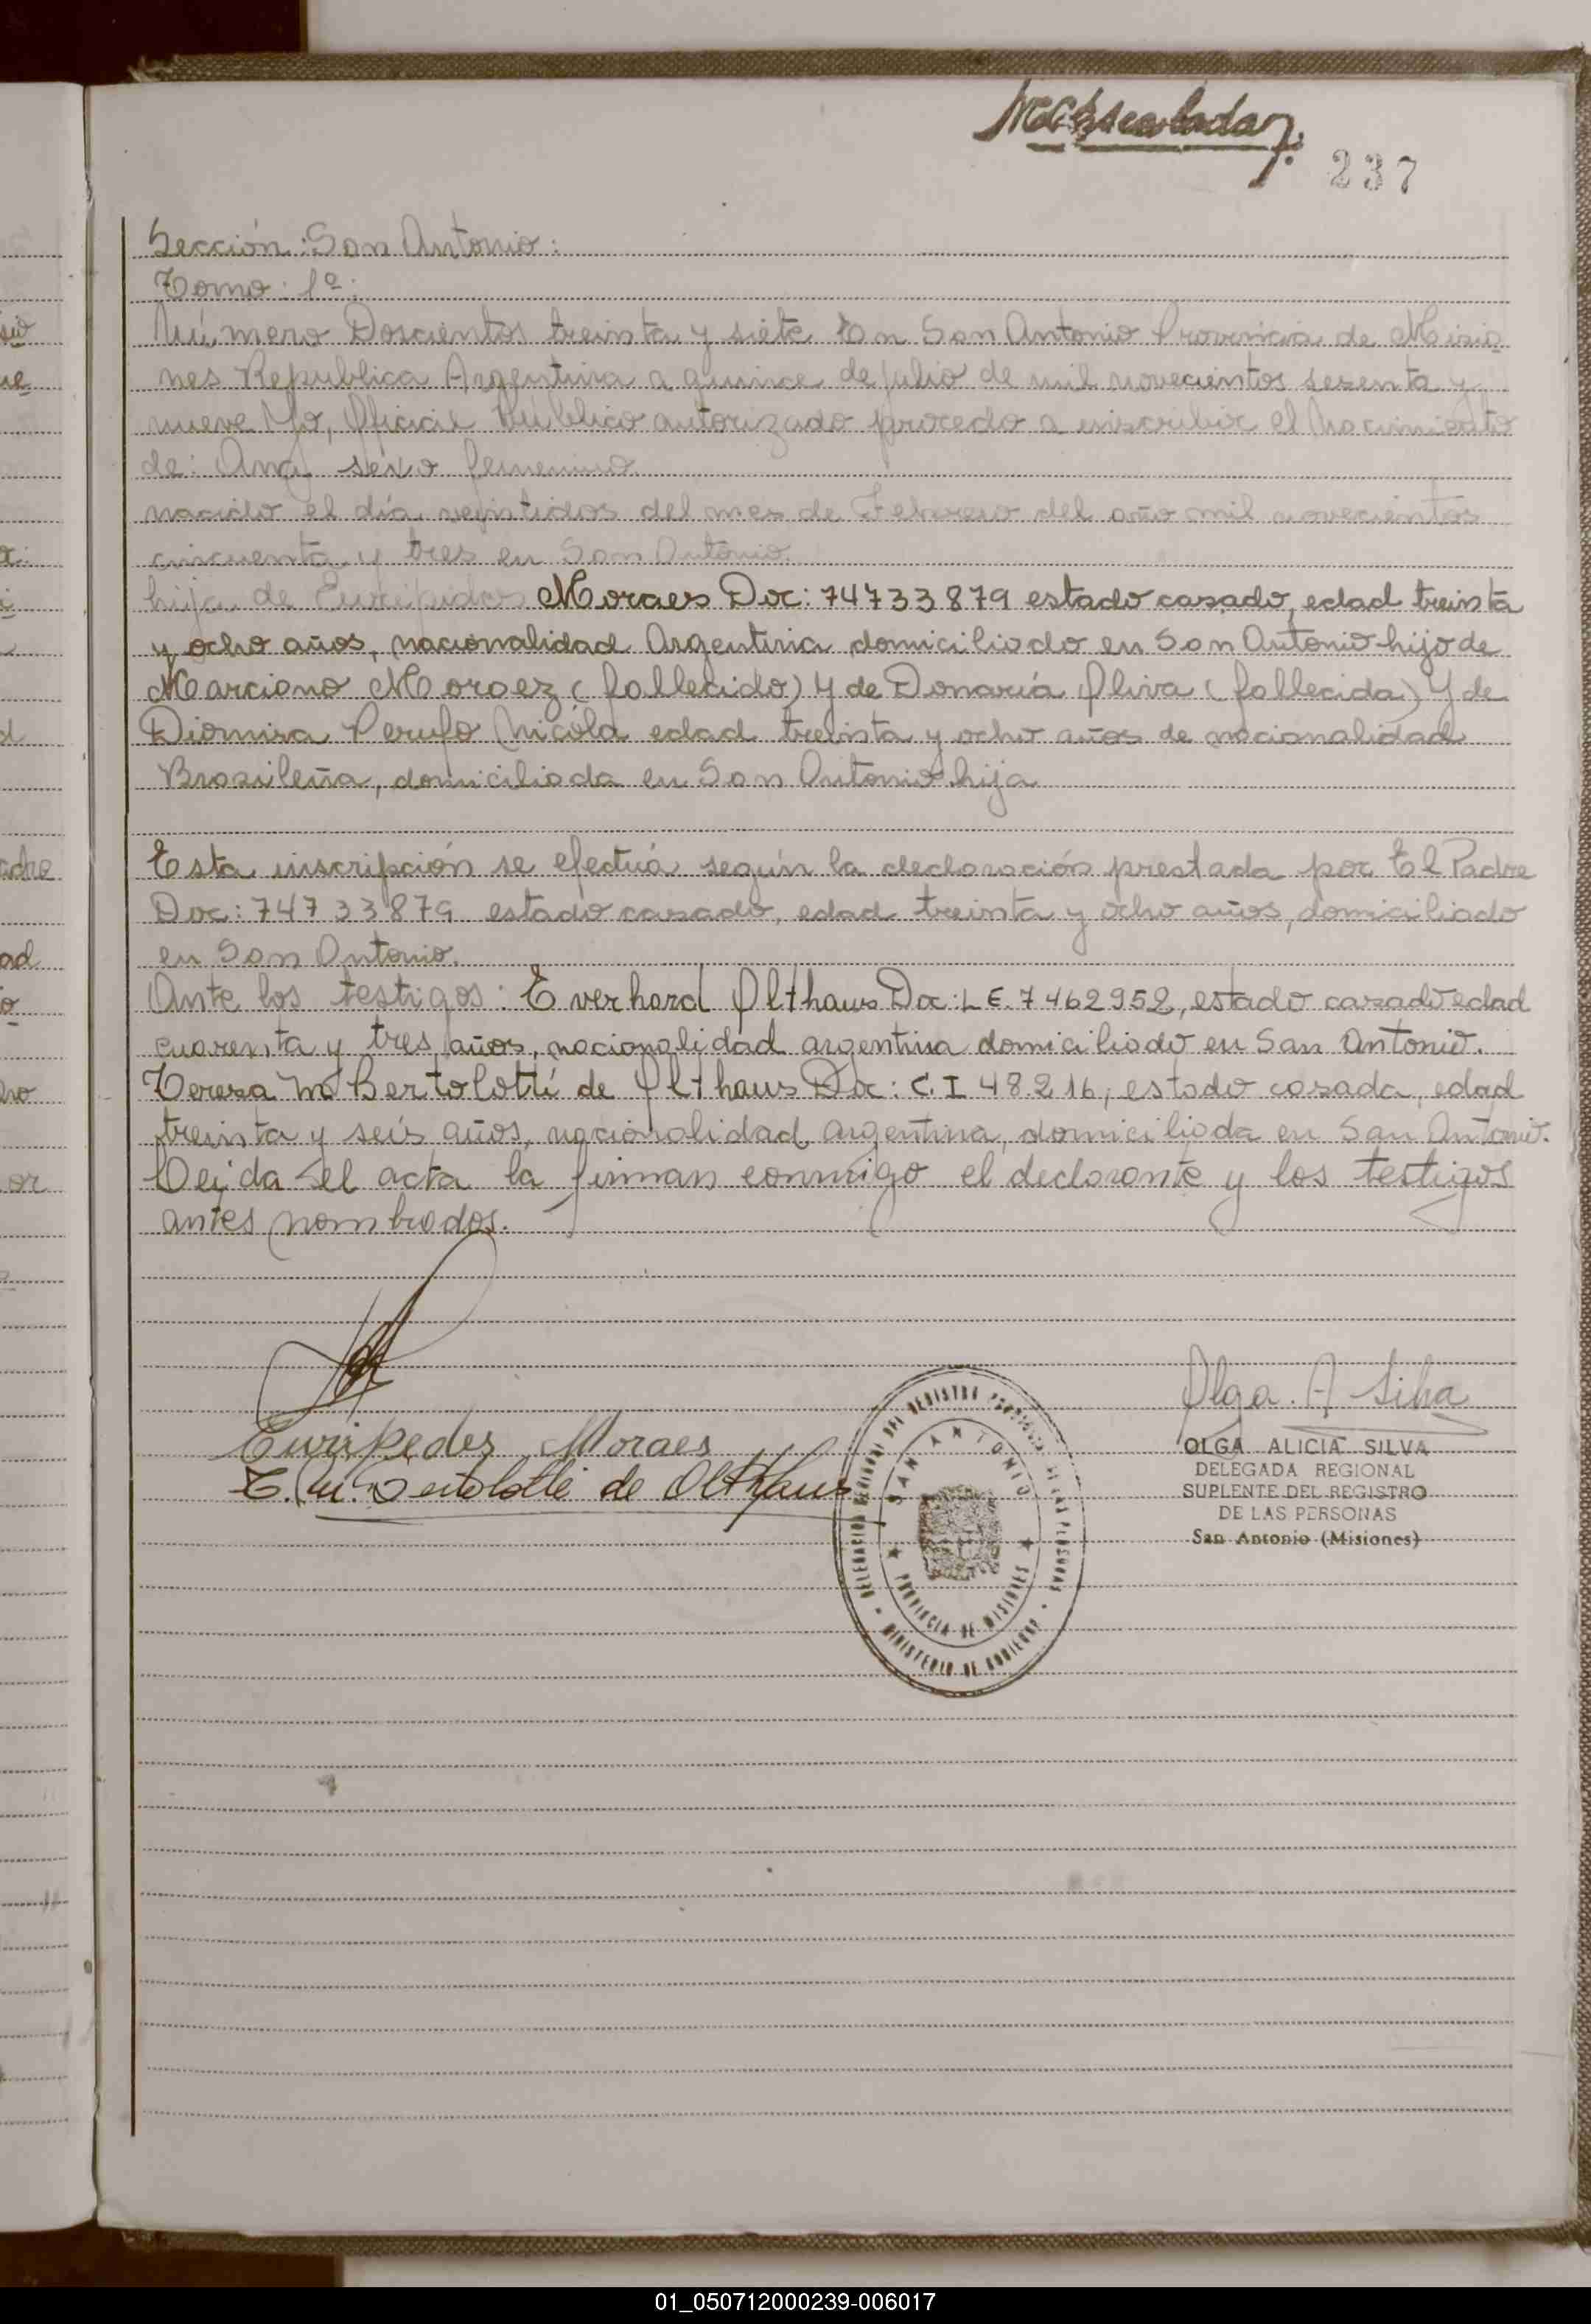 237
Sección: San Antonio:
Tomo: 1º:
Número Doscientos treinta y siete En San Antonio Provincia de Misio
nes Republica Argentina a quince de julio de mil novecientos sesenta y
nueve Yo, Oficial Público autorizado procedo a inscribir el Nacimiento
de: Ana sexo femenino
nacido el día veintidos del mes de Febrero del año mil novecientos
cincuenta y tres en San Antonio.
hija de Euripides Moraes Doc: 74733879 estado casado, edad treinta
y ocho años, nacionalidad Argentina domiciliado en San Antonio hijo de
Marciano Moraez (fallecido) y de Donaria Oliva (fallecida) y de
Diomira Perufo Nicóla edad treinta y ocho años de nacionalidad
Brasileña, domiciliada en San Antonio hija
Esta inscripción se efectuá según la declaración prestada por El Padre
Doc: 74733879 estado casado, edad treinta y ocho años, domiciliado
en San Antonio.
Ante los testigos: Everhard Olthaus Doc: L E. 7462952, estado casado edad
cuarenta y tres años, nacionalidad argentina domiciliado en San Antonio.
Teresa M Bertolotti de Olthaus Doc: C.I 48.216, estado casada, edad
treinta y seis años, nacionalidad argentina, domiciliada en San Antonio.
Leida el acta la firman conmigo el declarante y los testigos
antes nombrados.
Olga. A Silva
Euripedes Moraes
T. M. Bertolotti de Olthaus
OLGA ALICIA SILVA
DELEGADA REGIONAL
SUPLENTE DEL REGISTRO
DE LAS PERSONAS
San Antonio (Misiones)
DELEGACION REGIONAL DEL REGISTRO PROVINCIAL DE LAS PERSONAS
SAN ANTONIO
PROVINCIA DE MISIONES
MINISTERIO DE GOBIERNO
01_050712000239-006017